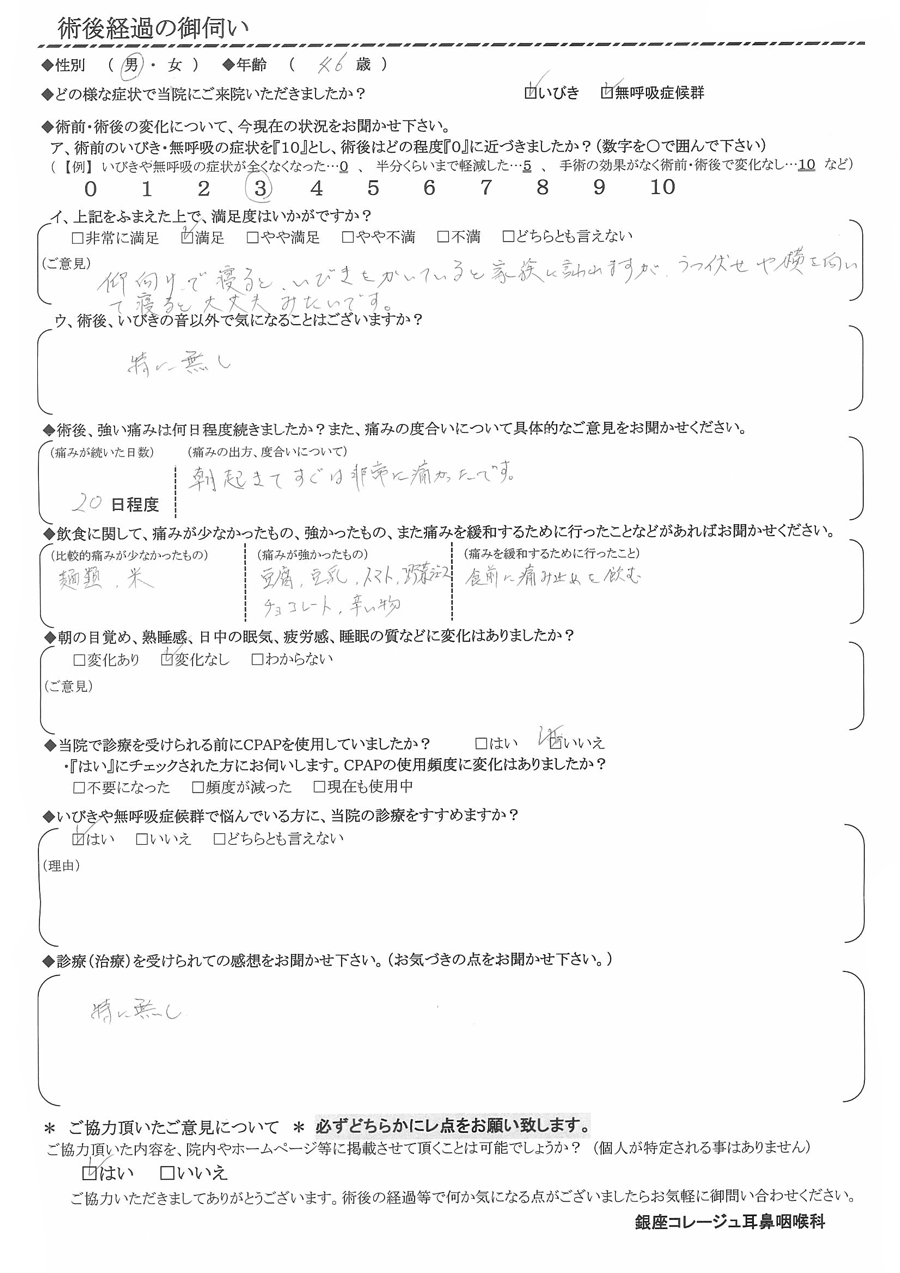 術後経過の御伺い
◆性別 （ 男 ・ 女 ） ◆年齢 （ 46 歳 ）
◆どの様な症状で当院にご来院いただきましたか？ ☑いびき ☑無呼吸症候群
◆術前・術後の変化について、今現在の状況をお聞かせ下さい。
ア、術前のいびき・無呼吸の症状を『10』とし、術後はどの程度『0』に近づきましたか？（数字を○で囲んで下さい）
（【例】いびきや無呼吸の症状が全くなくなった…0 、 半分くらいまで軽減した…5 、 手術の効果がなく術前・術後で変化なし…10 など）
0 1 2 3 4 5 6 7 8 9 10
イ、上記をふまえた上で、満足度はいかがですか？
□非常に満足 ☑満足 □やや満足 □やや不満 □不満 □どちらとも言えない
（ご意見） 仰向けで寝ると、いびきをかいていると家族に言われますが、うつ伏せや横を向い
て寝ると大丈夫みたいです。
ウ、術後、いびきの音以外で気になることはございますか？
特に無し
◆術後、強い痛みは何日程度続きましたか？また、痛みの度合いについて具体的なご意見をお聞かせください。
（痛みが続いた日数） （痛みの出方、度合いについて）
朝起きてすぐは非常に痛かったです。
20 日程度
◆飲食に関して、痛みが少なかったもの、強かったもの、また痛みを緩和するために行ったことなどがあればお聞かせください。
（比較的痛みが少なかったもの） （痛みが強かったもの） （痛みを緩和するために行ったこと）
麺類、米 豆腐、豆乳、トマト、野菜ジュース 食前に痛み止めを飲む
チョコレート、辛い物
◆朝の目覚め、熟睡感、日中の眠気、疲労感、睡眠の質などに変化はありましたか？
□変化あり ☑変化なし □わからない
（ご意見）
◆当院で診療を受けられる前にCPAPを使用していましたか？ □はい ☑いいえ
・『はい』にチェックされた方にお伺いします。CPAPの使用頻度に変化はありましたか？
□不要になった □頻度が減った □現在も使用中
◆いびきや無呼吸症候群で悩んでいる方に、当院の診療をすすめますか？
☑はい □いいえ □どちらとも言えない
（理由）
◆診療（治療）を受けられての感想をお聞かせ下さい。（お気づきの点をお聞かせ下さい。）
特に無し
＊ ご協力頂いたご意見について ＊ 必ずどちらかにレ点をお願い致します。
ご協力頂いた内容を、院内やホームページ等に掲載させて頂くことは可能でしょうか？ （個人が特定される事はありません）
☑はい □いいえ
ご協力いただきましてありがとうございます。術後の経過等で何か気になる点がございましたらお気軽に御問い合わせください。
銀座コレージュ耳鼻咽喉科